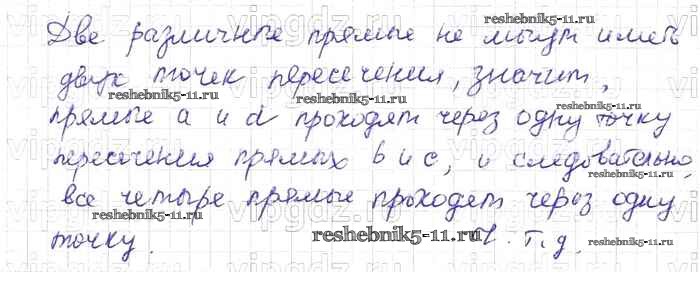 Две различные прямые не могут иметь
двух точек пересечения, значит,
прямые a и d проходят через одну точку
пересечения прямых b и c, и следовательно,
все четыре прямые проходят через одну
точку. Ч. т. д.
reshebnik5-11.ru
reshebnik5-11.ru
reshebnik5-11.ru
reshebnik5-11.ru
reshebnik5-11.ru
reshebnik5-11.ru
reshebnik5-11.ru
reshebnik5-11.ru
vipgdz.ru